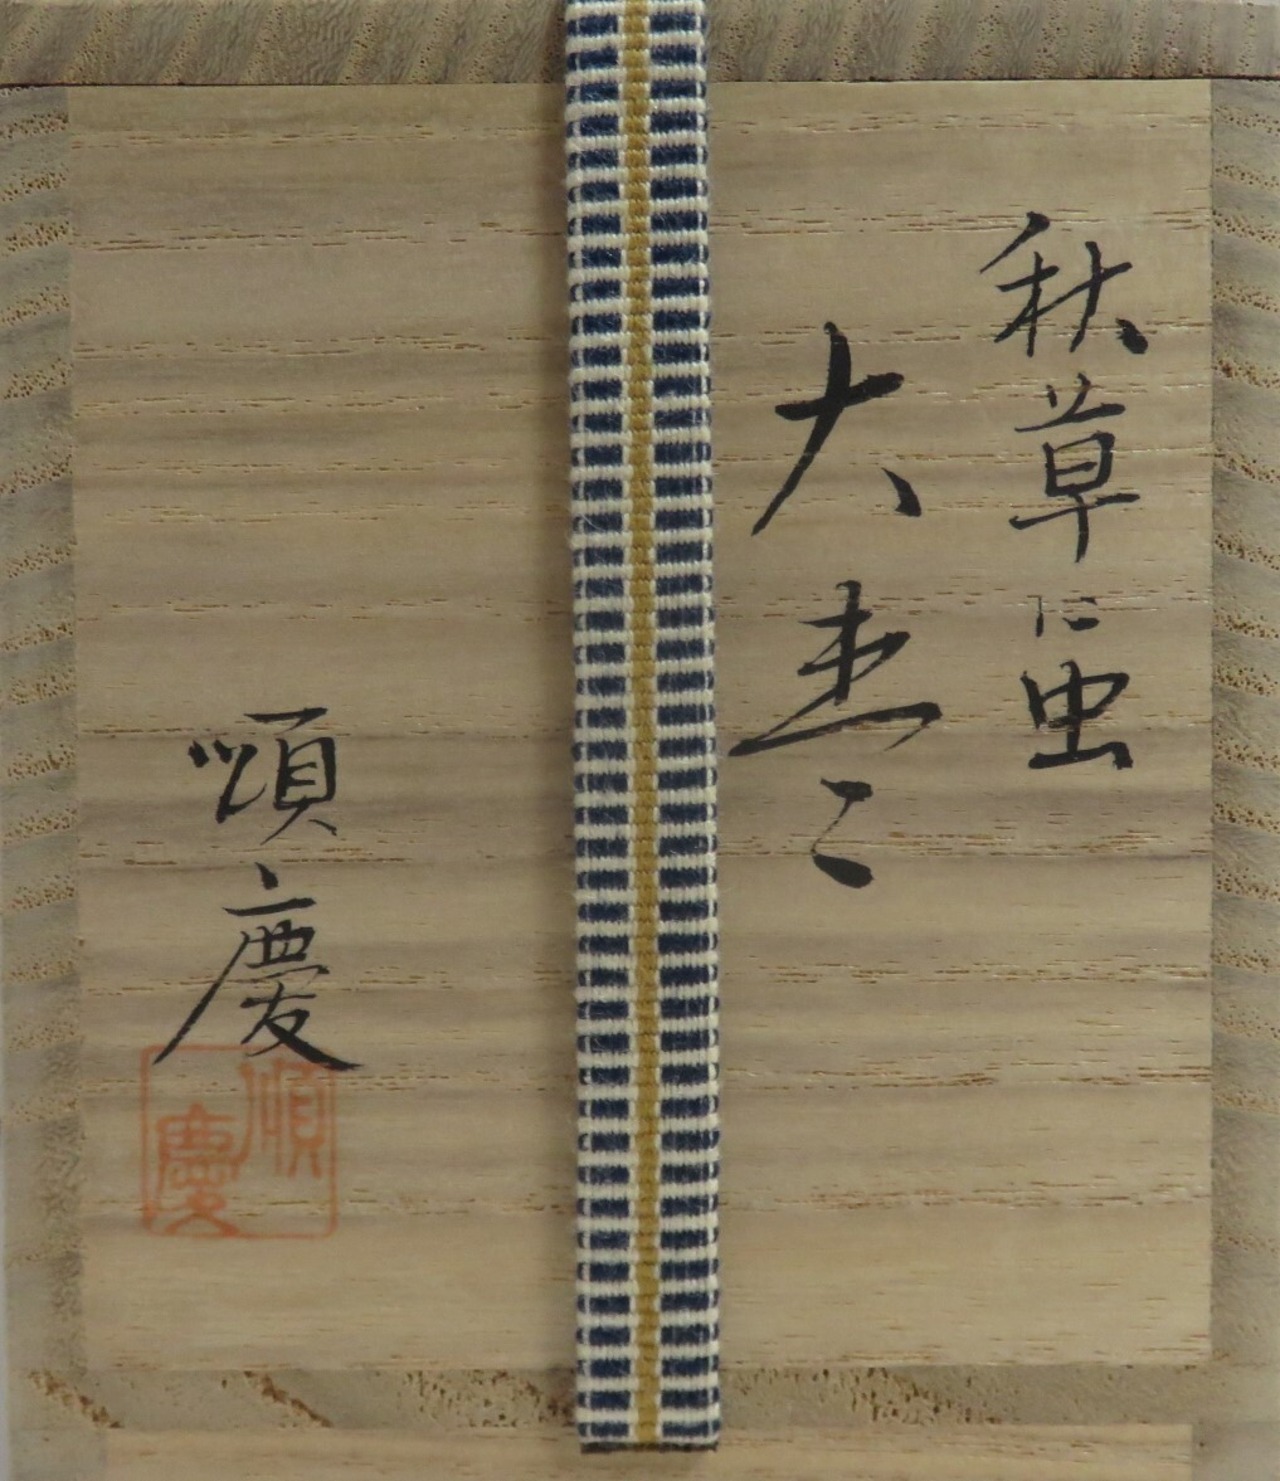 秋草に虫
大棗
順慶
順慶